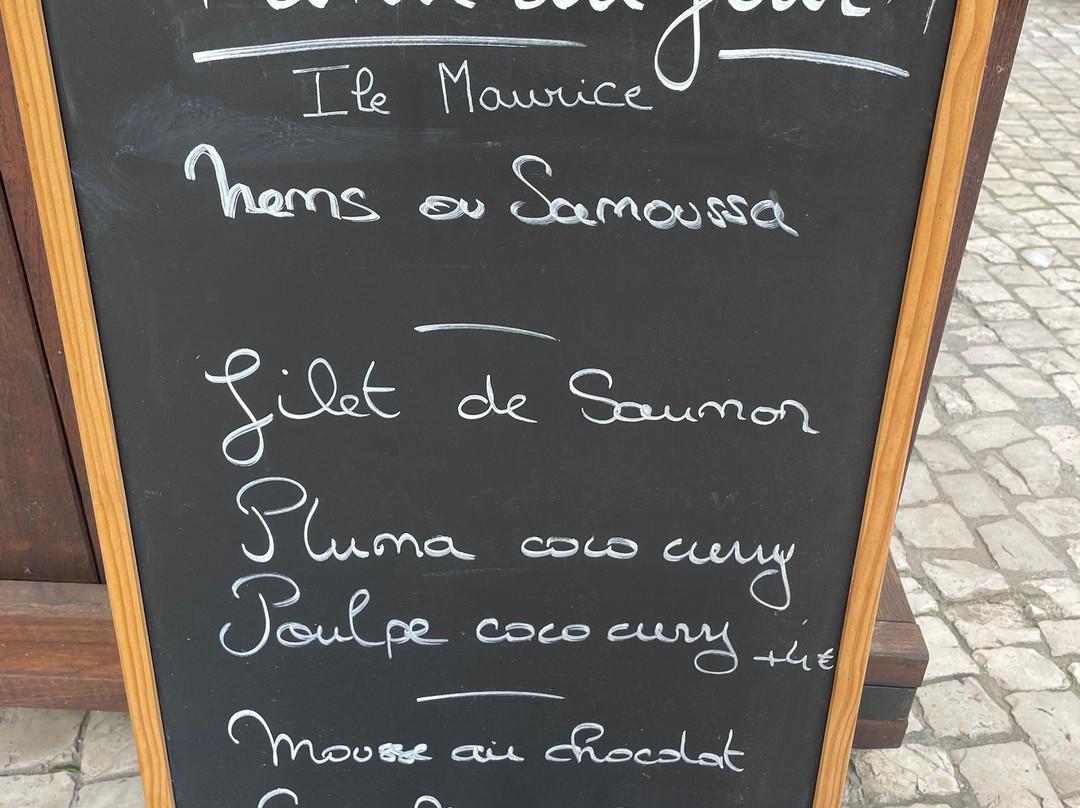 du jour
Ile Maurice
Nems ou Samoussa
Filet de Saumon
Pluma coco curry
Poulpe coco curry +4€
Mousse au chocolat